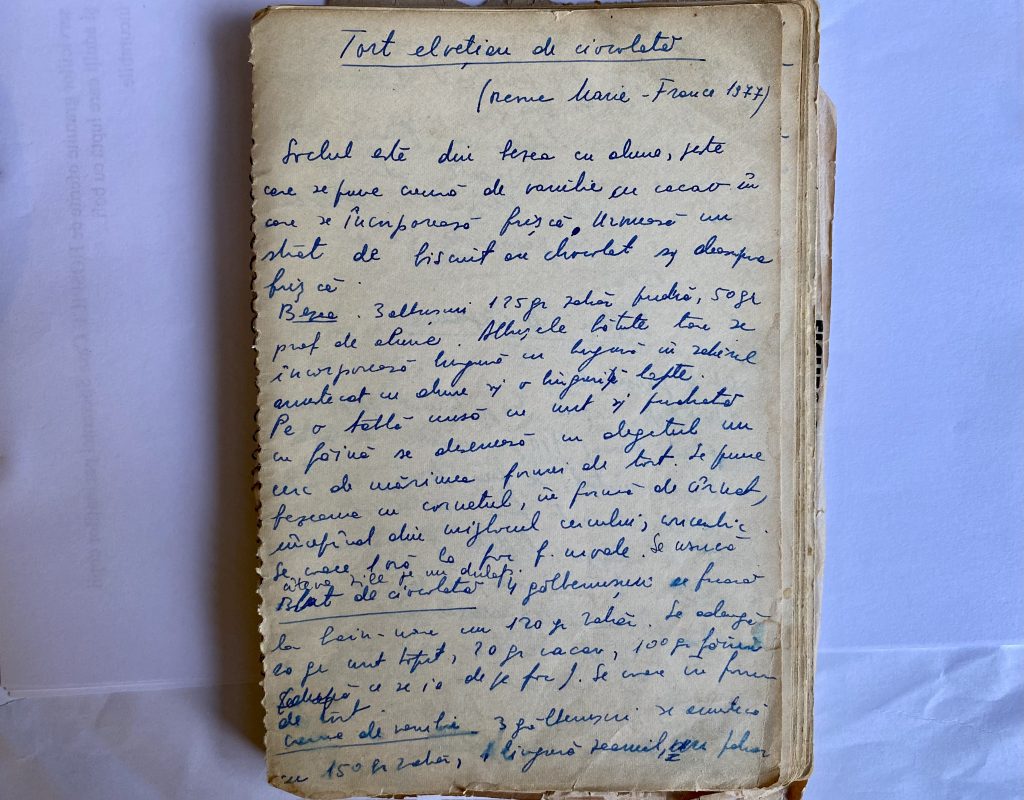 Tort elvețian de ciocolată
(revue Marie-France 1977)
Soclul este din bezea cu alune, peste
care se pune cremă de vanilie cu cacao în
care se încorporează frișcă. Urmează un
strat de biscuit au chocolat și deasupra
frișcă.
Bezea. 3 albușuri 175 gr zahăr pudră, 50 gr
praf de alune. Albușele bătute tare se
încorporează lingură cu lingură în zahărul
amestecat cu alune și o linguriță lapte.
Pe o tablă unsă cu unt și pudrată
cu făină se desenează cu degetul un
cerc de mărimea formei de tort. Se pune
bezeaua cu cornetul, în formă de cîrnat,
începînd din mijlocul cercului, concentric.
Se coace 1 oră la foc f. moale. Se usucă
câteva zile pe un dulap.
Blat de ciocolată 4 gălbenușuri se freacă
la bain-marie cu 120 gr zahăr. Se adaugă
20 gr unt topit, 20 gr cacao, 100 gr făină
după ce se ia de pe foc). Se coace în forma
de tort.
Crema de vanilie 3 gălbenușuri se amestecă
cu 150 gr zahăr, 1 lingură zeamil, un pahar